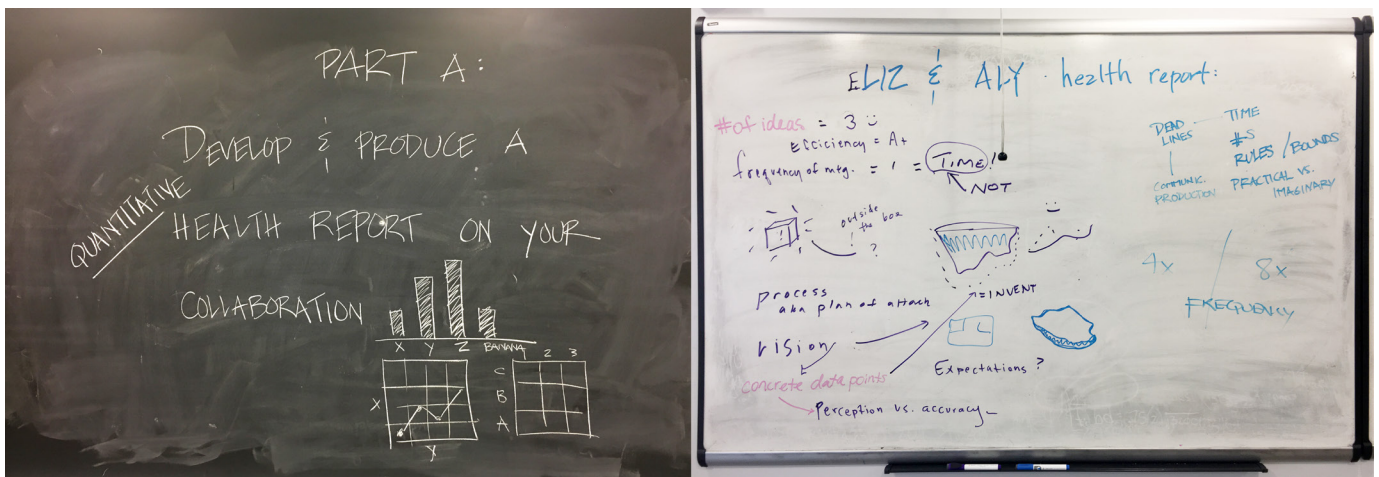 PART A:
DEVELOP & PRODUCE A
QUANTITATIVE
HEALTH REPORT ON YOUR
COLLABORATION
X Y Z BANANA
X
Y
2 3
C
B
A
ELIZ & ALY · health report:
#of ideas = 3
Efficiency = A+
frequency of mtg. = 1 = TIME!
NOT
outside
the box
?
process
aka plan of attach
= INVENT
vision
Expectations?
concrete data points
Perception vs. accuracy
DEAD
LINES
COMMUNIC.
PRODUCTION
TIME
#S
RULES / BOUNDS
PRACTICAL VS.
IMAGINARY
4x / 8x
FREQUENCY